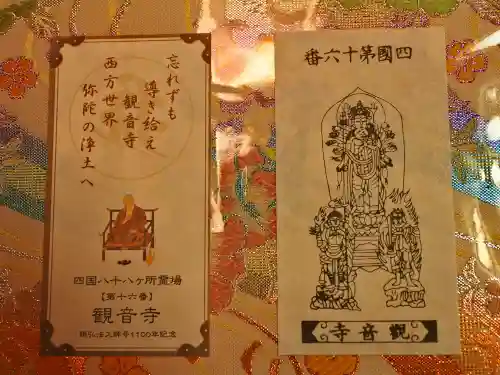 忘れずも
導き給え
観音寺
西方世界
弥陀の浄土へ
四国八十八ヶ所霊場
【第十六番】
観音寺
弘法大師号1100年記念
四國第十六番
觀音寺